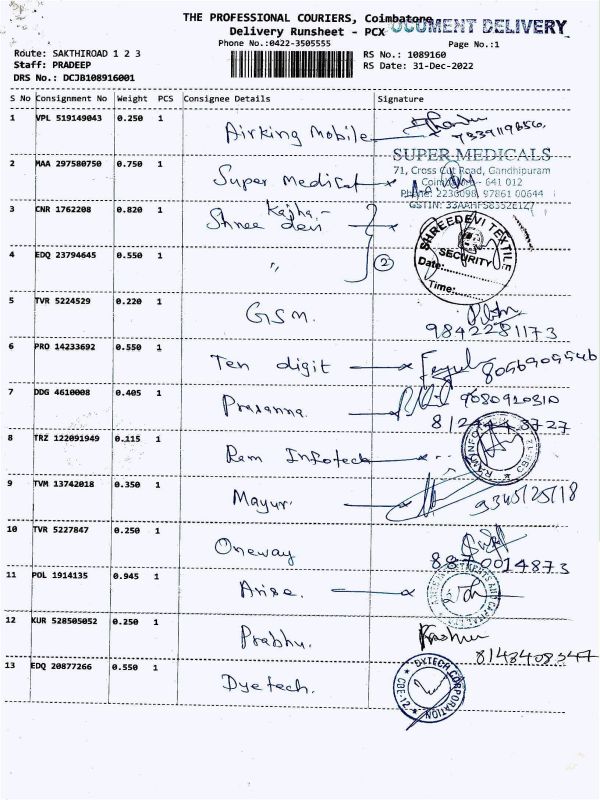 THE PROFESSIONAL COURIERS, Coimbatore
DOCUMENT DELIVERY
Delivery Runsheet - PCX
Phone No.:0422-3505555
Page No.:1
Route: SAKTHIROAD 1 2 3
RS No.: 1089160
Staff: PRADEEP
RS Date: 31-Dec-2022
DRS No.: DCJB108916001
S No Consignment No Weight PCS Consignee Details Signature
1 VPL 519149043 0.250 1 Airking Mobile
2 MAA 297580750 0.750 1 Super Medical
SUPER MEDICALS
71, Cross Cut Road, Gandhipuram
Coimbatore - 641 012
Phone: 2236098, 97861 00644
3 CNR 1762208 0.820 1 Shree devi
4 EDQ 23794645 0.550 1 〃 2
SHREEDEVI TEXTILE
SECURITY
Date:
Time:
5 TVR 5224529 0.220 1 GSM.
9842281173
6 PRO 14233692 0.550 1 Ten digit
7 DDG 4610008 0.405 1 Prasanna. 9080920310
8 TRZ 122091949 0.115 1 Ram Infotech
9 TVM 13742018 0.350 1 Mayur
10 TVR 5227847 0.250 1 Oneway
8870014873
11 POL 1914135 0.945 1 Arise.
12 KUR 528505052 0.250 1 Prabhu.
8143408347
13 EDQ 20877266 0.550 1 Dyetech.
DYTECH CORPORATION
CBE-12